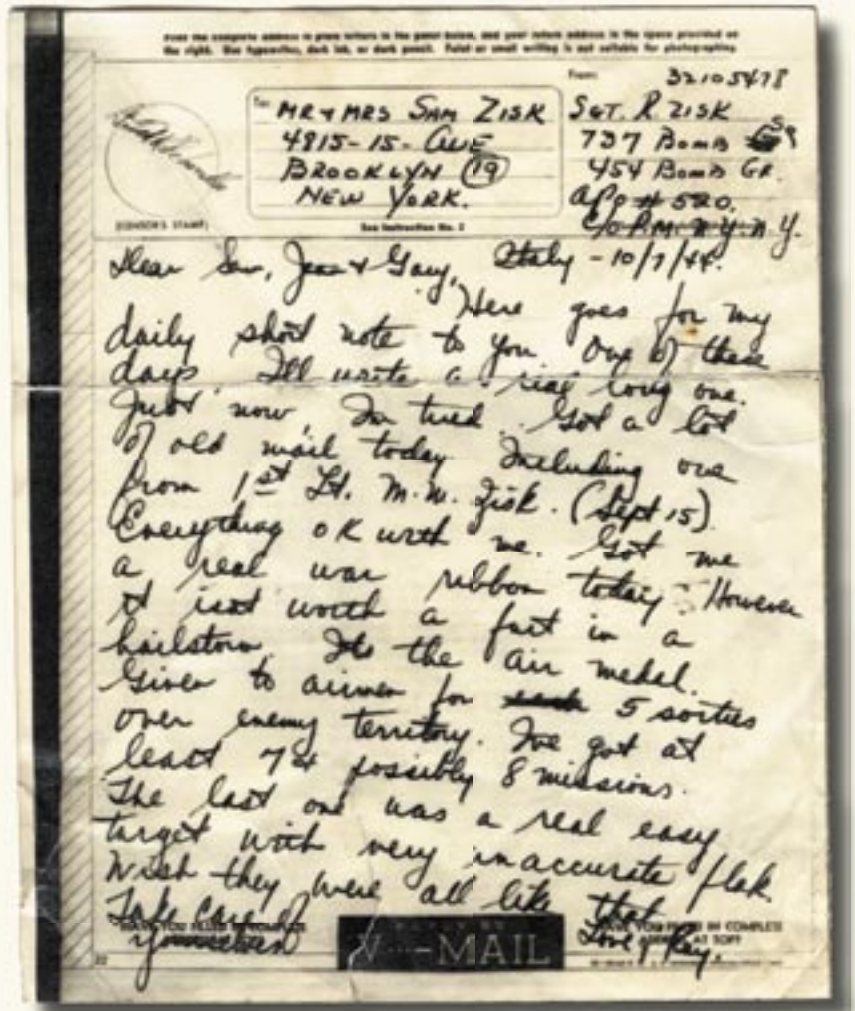 PRINT the complete address in plain letters in the panel below, and your return address in the space provided on
the right. Use typewriter, dark ink, or dark pencil. Faint or small writing is not suitable for photographing.
From: 32105478
To: MR & MRS SAM ZISK
4815-15-AVE
BROOKLYN (19)
NEW YORK.
SGT. R ZISK
737 BOMB SQ
454 BOMB GR.
APO # 520.
C/O P.M. N.Y. N.Y.
(CENSOR'S STAMP)
See Instruction No. 2
Dear Sam, Jean & Gary, Italy - 10/7/44.
Here goes for my
daily short note to you. One of these
days I'll write a real long one.
Just now, I'm tired. Got a lot
of old mail today Including one
from 1st Lt. M.W. Zisk. (Sept 15).
Everything OK with me. Got me
a real war ribbon today. However
it isnt worth a fart in a
hailstorm. Its the air medal.
Given to airmen for 5 sorties
over enemy territory. I've got at
least 7 & possibly 8 missions.
The last one was a real easy
target with very inaccurate flak.
Wish they were all like that
Take care of
yourselves
Love, Ray.
HAVE YOU FILLED IN COMPLETE
V···-MAIL
HAVE YOU FILLED IN COMPLETE
ADDRESS AT TOP?